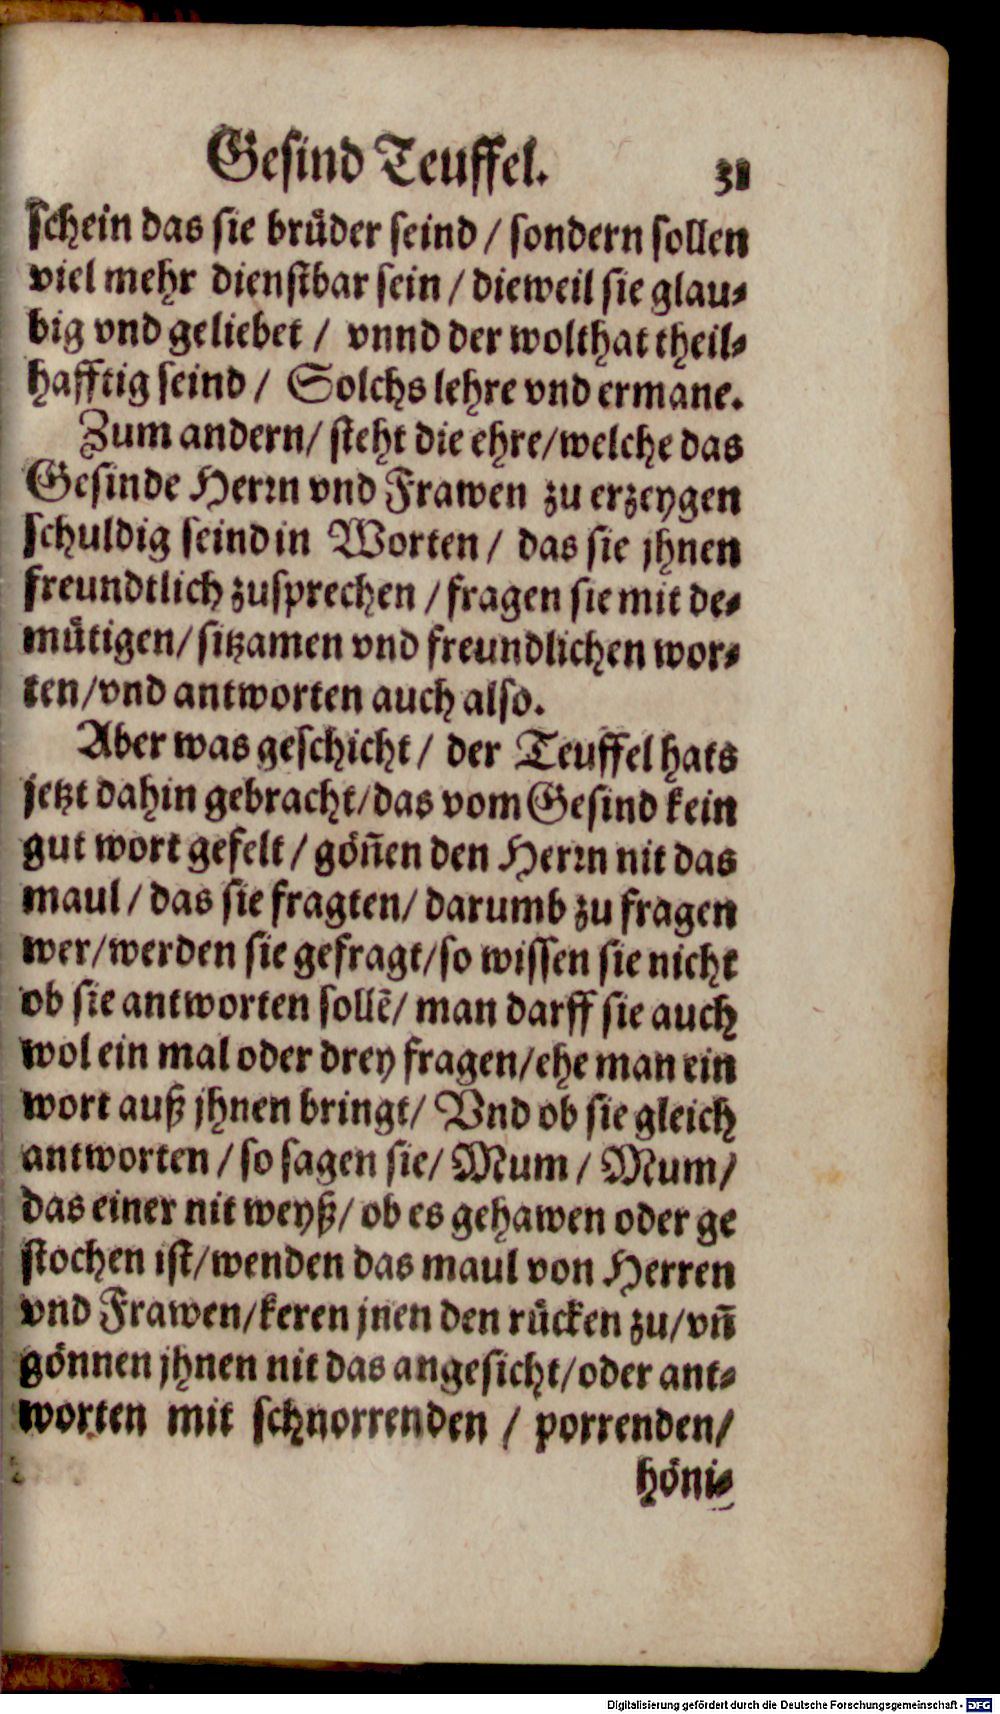 Gesind Teuffel. 31
schein das sie brůder seind / sondern sollen
viel mehr dienstbar sein / dieweil sie glau⸗
big vnd geliebet / vnnd der wolthat theil⸗
hafftig seind / Solchs lehre vnd ermane.
Zum andern/ steht die ehre/welche das
Gesinde Herꝛn vnd Frawen zu erzeygen
schuldig seind in Worten / das sie jhnen
freundtlich zusprechen / fragen sie mit de⸗
můtigen/ sitzamen vnd freundlichen wor⸗
ten/vnd antworten auch also.
Aber was geschicht / der Teuffel hats
jetzt dahin gebracht/das vom Gesind kein
gut wort gefelt / goͤñen den Herꝛn nit das
maul / das sie fragten/ darumb zu fragen
wer/werden sie gefragt/so wissen sie nicht
ob sie antworten sollẽ/ man darff sie auch
wol ein mal oder drey fragen/ehe man ein
wort auß jhnen bringt/ Vnd ob sie gleich
antworten / so sagen sie/ Mum / Mum/
das einer nit weyß/ ob es gehawen oder ge
stochen ist/wenden das maul von Herren
vnd Frawen/keren jnen den růcken zu/vñ
goͤnnen jhnen nit das angesicht/oder ant⸗
worten mit schnorrenden / porrenden/
hoͤni⸗
Digitalisierung gefördert durch die Deutsche Forschungsgemeinschaft - DFG